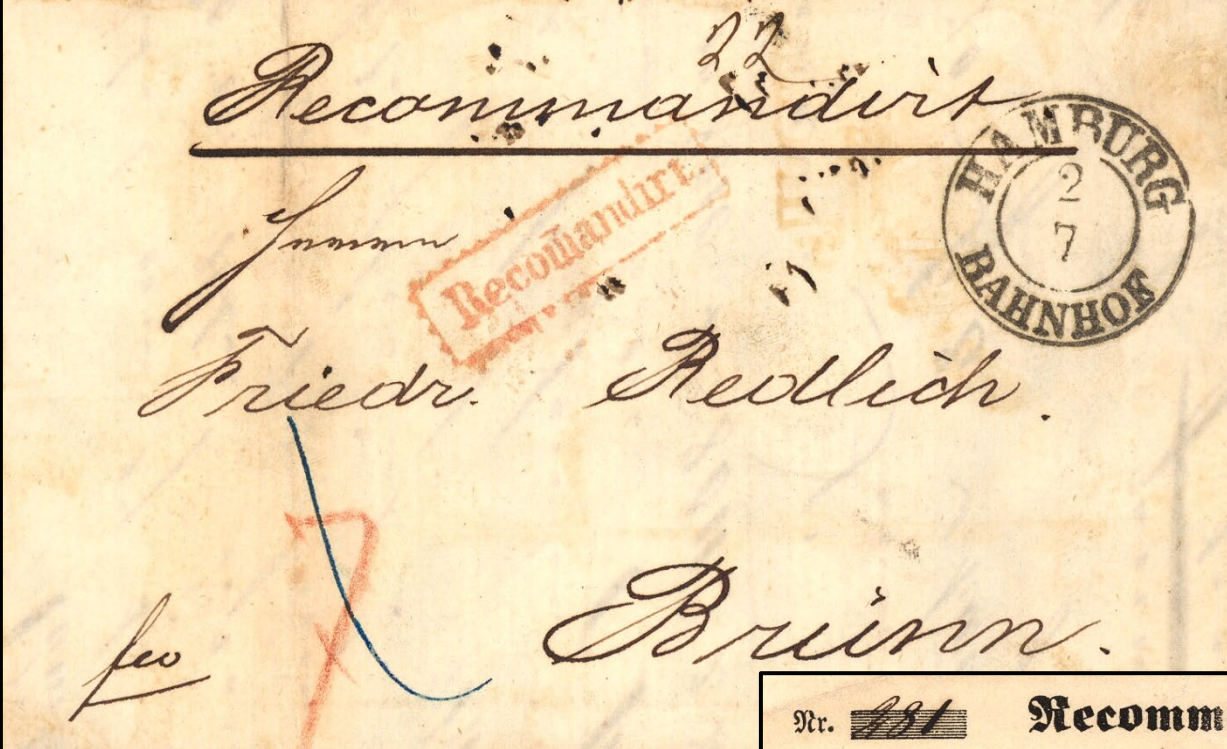 22
Recommandirt
HAMBURG
2
7
BAHNHOF
Recomandirt.
Herrn
Friedr. Redlich.
7
fco
Brünn.
Nr. 281 Recomm